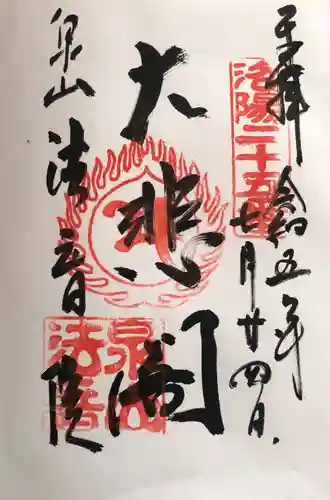 奉拝
令和五年
七月廿四日
洛陽二十五番
大悲閣
泉山
法音院
泉山
法音院